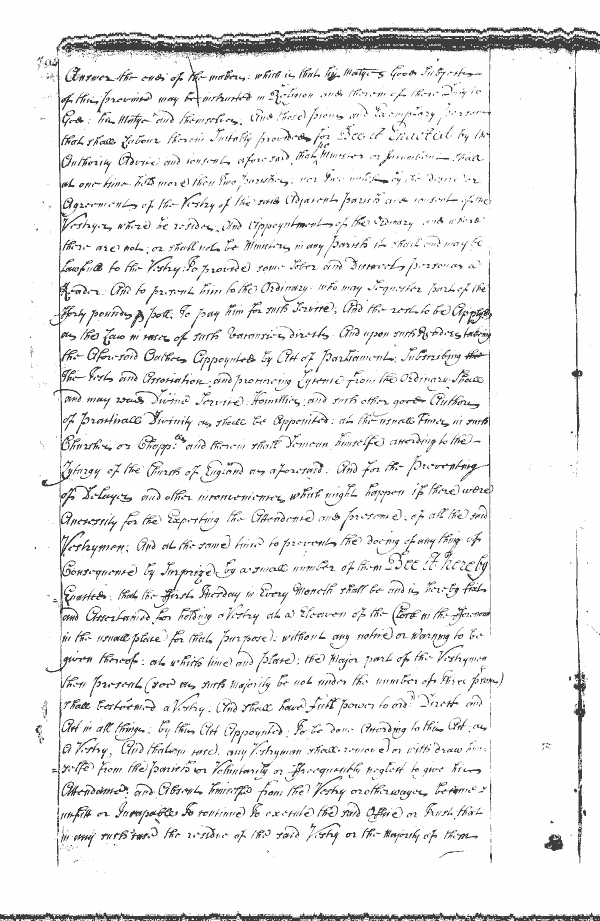 Answer the ends of the makers: which is that his Matyes Good Subjects
of this province may be instructed in Religion and therein of there Duty to
God: his Matye and themselves. And those pious and Exemplary persons
that shall Labour therein Suitably provided for Bee it Enacted by the
Authority Advice and consent aforesaid, that no Minister or Incumbent shall
at one time hold more then two parishes: nor two unless by the desire or
Agreement of the Vestry of the said Adjacent parish and consent of the
Vestrye where he resides, And Appoyntment of the Ordinary and where
there are not: or shall not be Ministers in any parish it shall and may be
lawfull to the Vestry: To provide some Sober and Discreet person as a
Reader: And to present him to the Ordinary: who may Sequester part of the
fforty pounds p poll: To pay him for such Service, And the rest to be Applyed
as the Law in cases of such Vacancies directs: And upon such Readers taking
the Aforesaid Oathes Appoynted by Act of Parliament: Subscribing the
The Test and Association, and procuring Lycence from the Ordinary Shall
and may read Divine Service: Homilies: and such other good Authors
of practicall Divinity as shall be Appointed: at the usuall Times in such
Churches or Chappells and therein shall Demean himselfe according to the
Lyturgy of the Church of England as aforesaid: And for the Preventing
of Delayes and other inconveniences which might happen if there were
Anecessity for the Expecting the Attendance and presence: of all the said
Vestrymen: And at the same time to prevent the doeing of anything of
Consequence by Surprize, by a small number of them Bee it hereby
Enacted: that the ffirst Tuesday in Every Moneth shall be and is hereby that
and Ascertained for holding a Vestry at a Eleaven of the Clock in the fforenoon
in the usuall place for that purpose: without any notice or warning to be
given thereof: at which time and place; the Major part of the Vestrymen
then present (soe as such Majority be not under the number of three persons)
shall be esteemed a Vestry: And shall have full power to Direct and
Act in all things: by this Act Appointed: To be done According to this Act: as
a Vestry, And that in case: any Vestryman shall remove or withdraw him
selfe from the parish or Voluntarily or ffrequently neglect to give his
Attendance and Absent himselfe from the Vestry or otherwayes become
unfitt or Incapable To continue To execute the said Office or Trust, that
in any such case the residue of the said Vestry or the majority of them